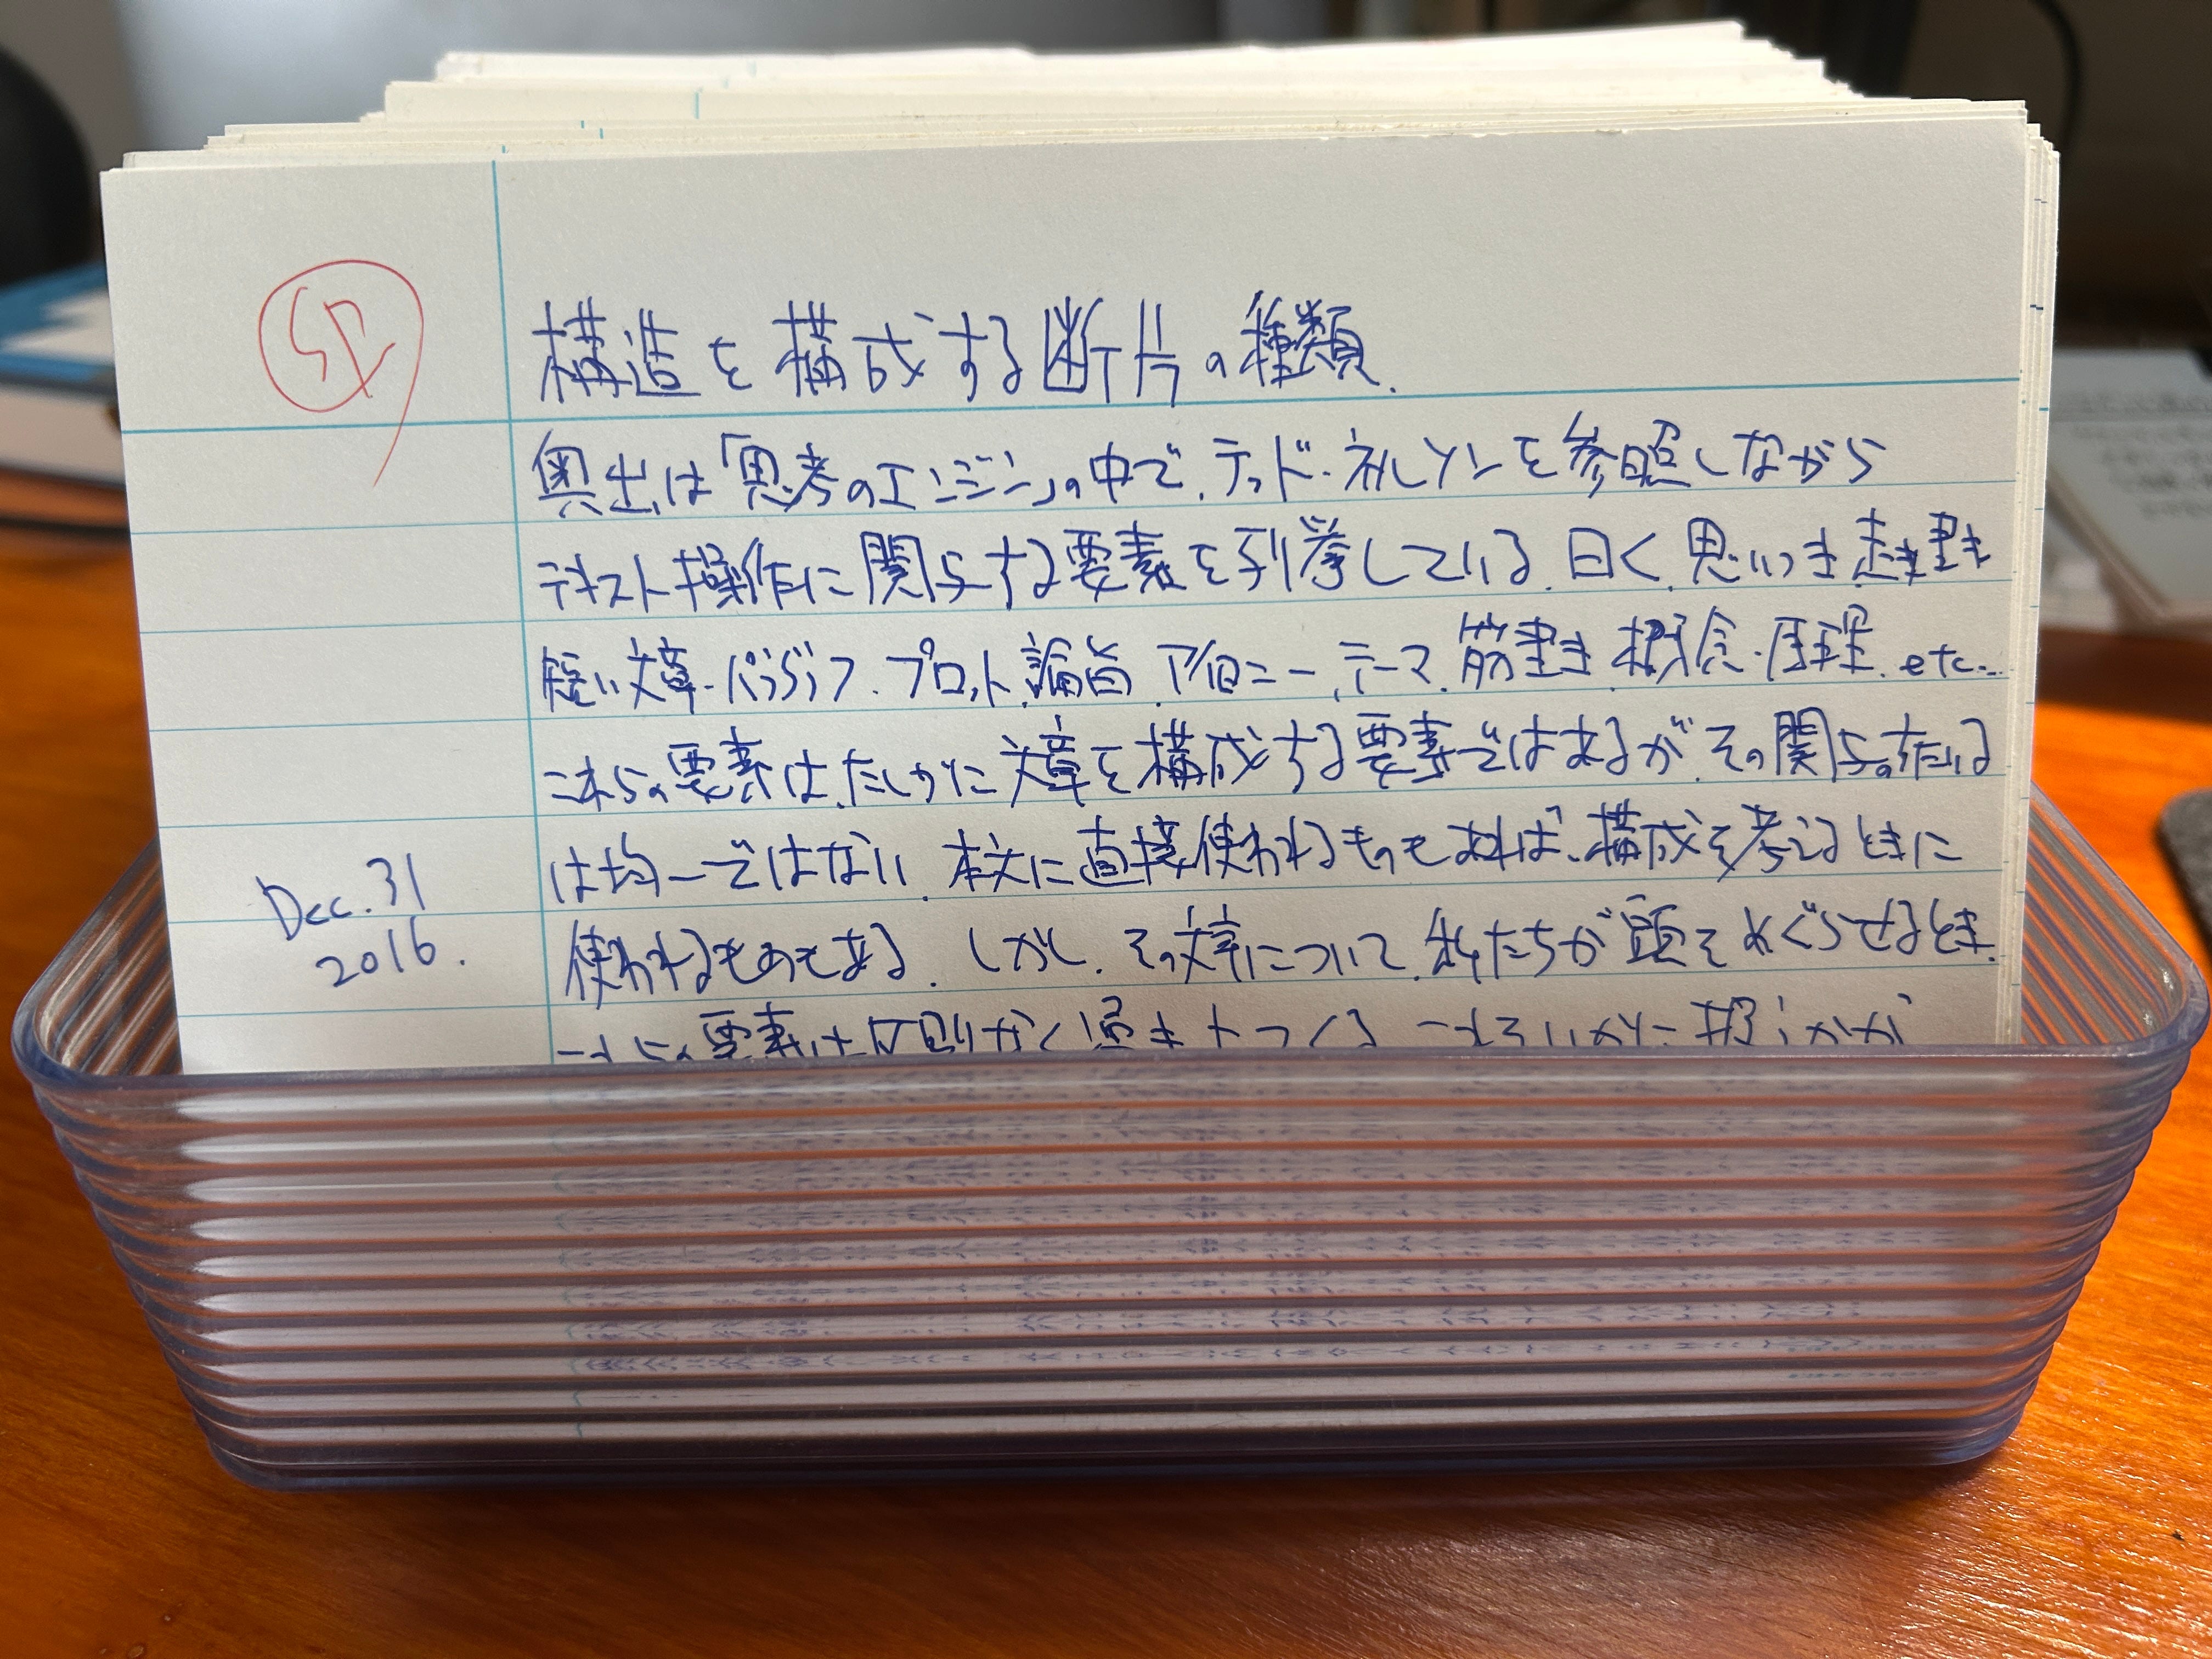 構造を構成する断片の種類.
奥出は「思考のエンジン」の中で、テッド・ネルソンを参照しながら
テキスト操作に関与する要素を列挙している. 曰く、思いつき、走り書き
短い文章、パラグラフ、プロット、論旨、アイロニー、テーマ、筋書き、概念、原理、etc…
これらの要素は、たしかに文章を構成する要素ではあるが、その関与の度合いは
は均一ではない、本文に直接使われるものもあれば、構成を考えるときに
使われるものもある. しかし、その文章について、私たちが頭をめぐらせるとき、
Dec. 31
2016.